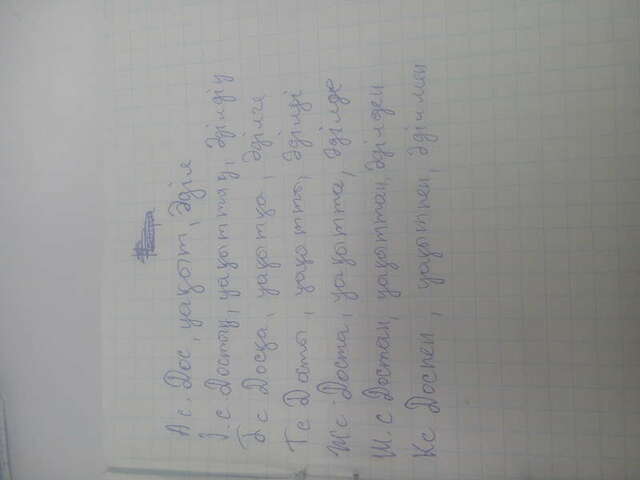 Ас. Дос, уақыт, Әділ
І.с Достың, уақыттың, Әділдің
Бс Досқа, уақытқа, Әділге
Тс Досты, уақытты, Әділді
Жс Доста, уақытта, Әділде
Ш.с Достан, уақыттан, Әділден
Кс Доспен, уақытпен, Әділмен